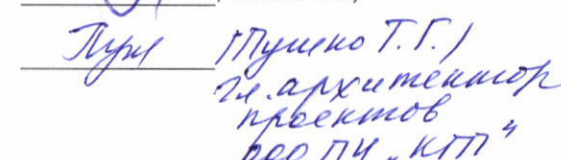 (Пушко Т.Г.)
гл. архитектор
проектов
ООО ПИ „КГП"